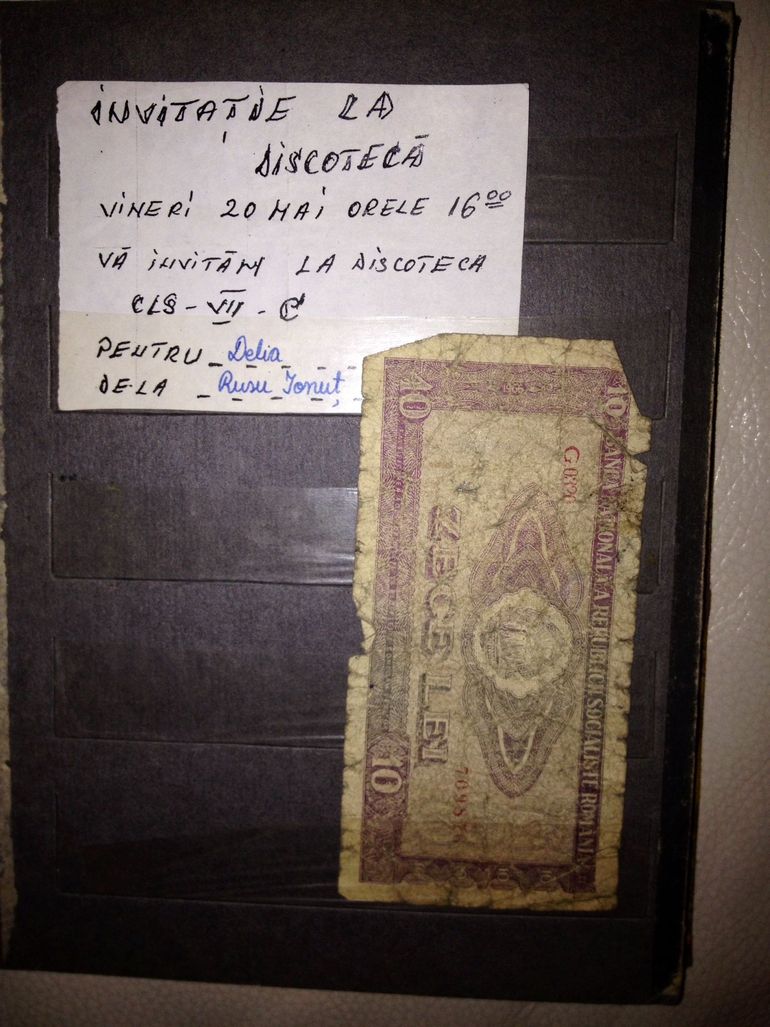 INVITAȚIE LA
DISCOTECĂ
VINERI 20 MAI ORELE 16 00
VĂ INVITĂM LA DISCOTECA
CLS - VII - C
PENTRU Delia
DE LA Rusu Ionuț
10
10
BANCA NAȚIONALĂ A REPUBLICII SOCIALISTE ROMÂNIA
ZECE LEI
10